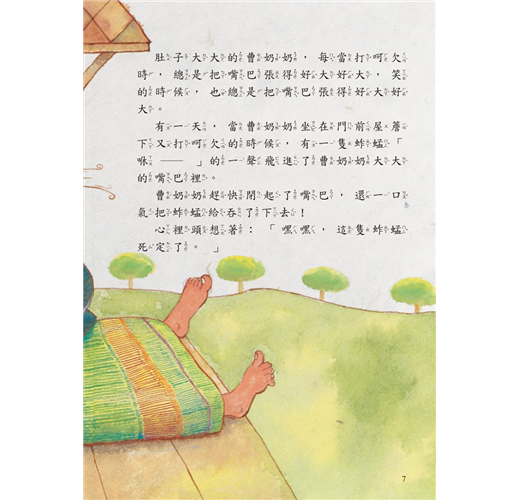 肚子大大的曹奶奶，每當打呵欠
時，總是把嘴巴張得好大好大，笑
的時候，也總是把嘴巴張得好大好
大。
有一天，當曹奶奶坐在門前屋簷
下又打呵欠的時候，有一隻蚱蜢「
咻——」的一聲飛進了曹奶奶大大
的嘴巴裡。
曹奶奶趕快閉起了嘴巴，還一口
氣把蚱蜢給吞了下去！
心裡頭想著：「嘿嘿，這隻蚱蜢
死定了。」
7